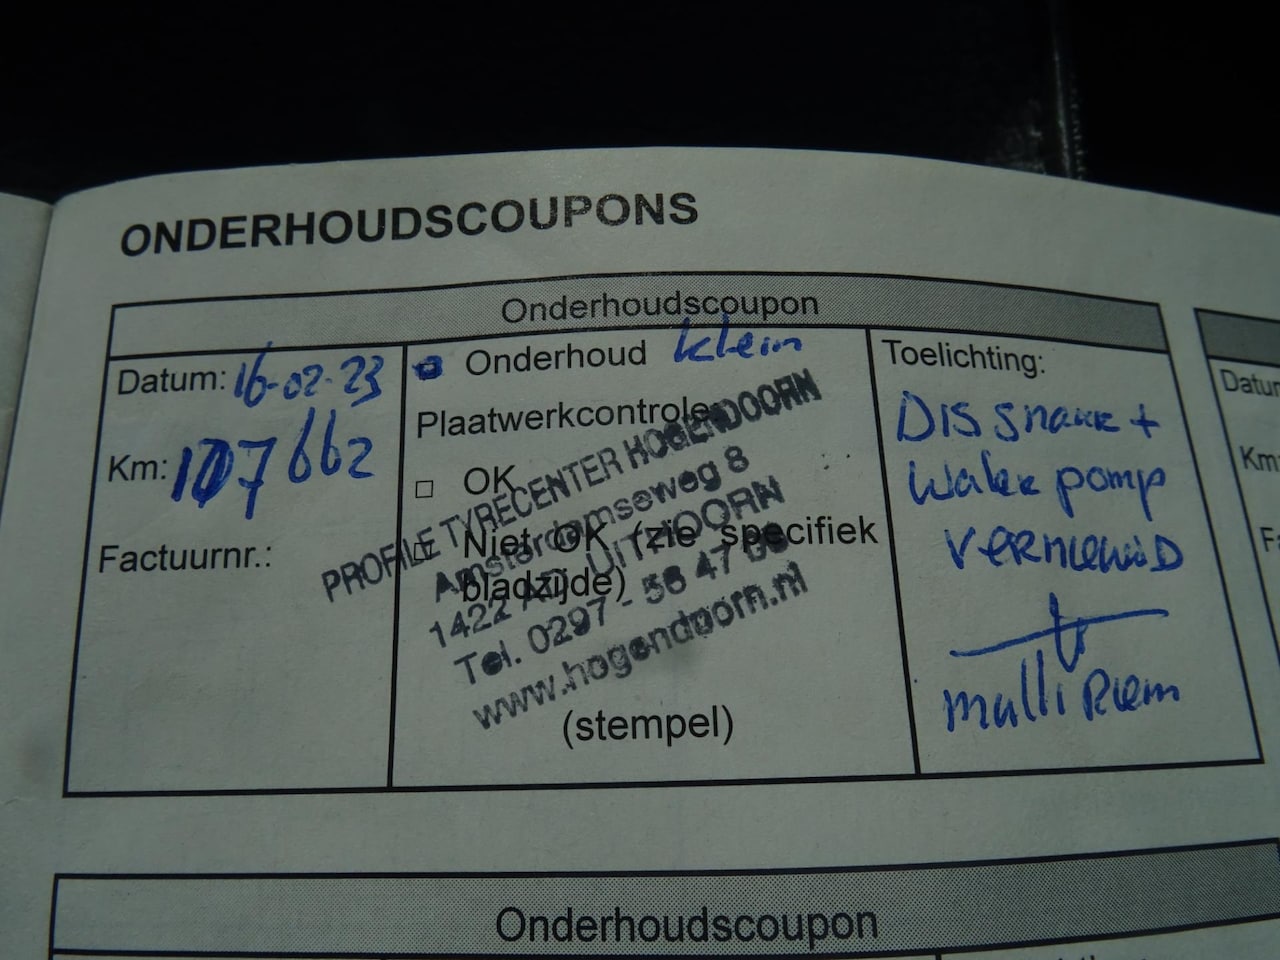 ONDERHOUDSCOUPONS
Onderhoudscoupon
Datum: 16-02-23
Km: 107662
Factuurnr.:
Onderhoud klein
Plaatwerkcontrole
OK
Niet OK (zie specifiek
bladzijde)
PROFILE TYRECENTER HOGENDOORN
Amsterdamseweg 8
1422 AD UITHOORN
Tel. 0297 - 56 47
www.hogendoorn.nl
(stempel)
Toelichting:
DISSnaar +
Water pomp
vernieuwD
multi Riem
Datum
Km
Fa
Onderhoudscoupon